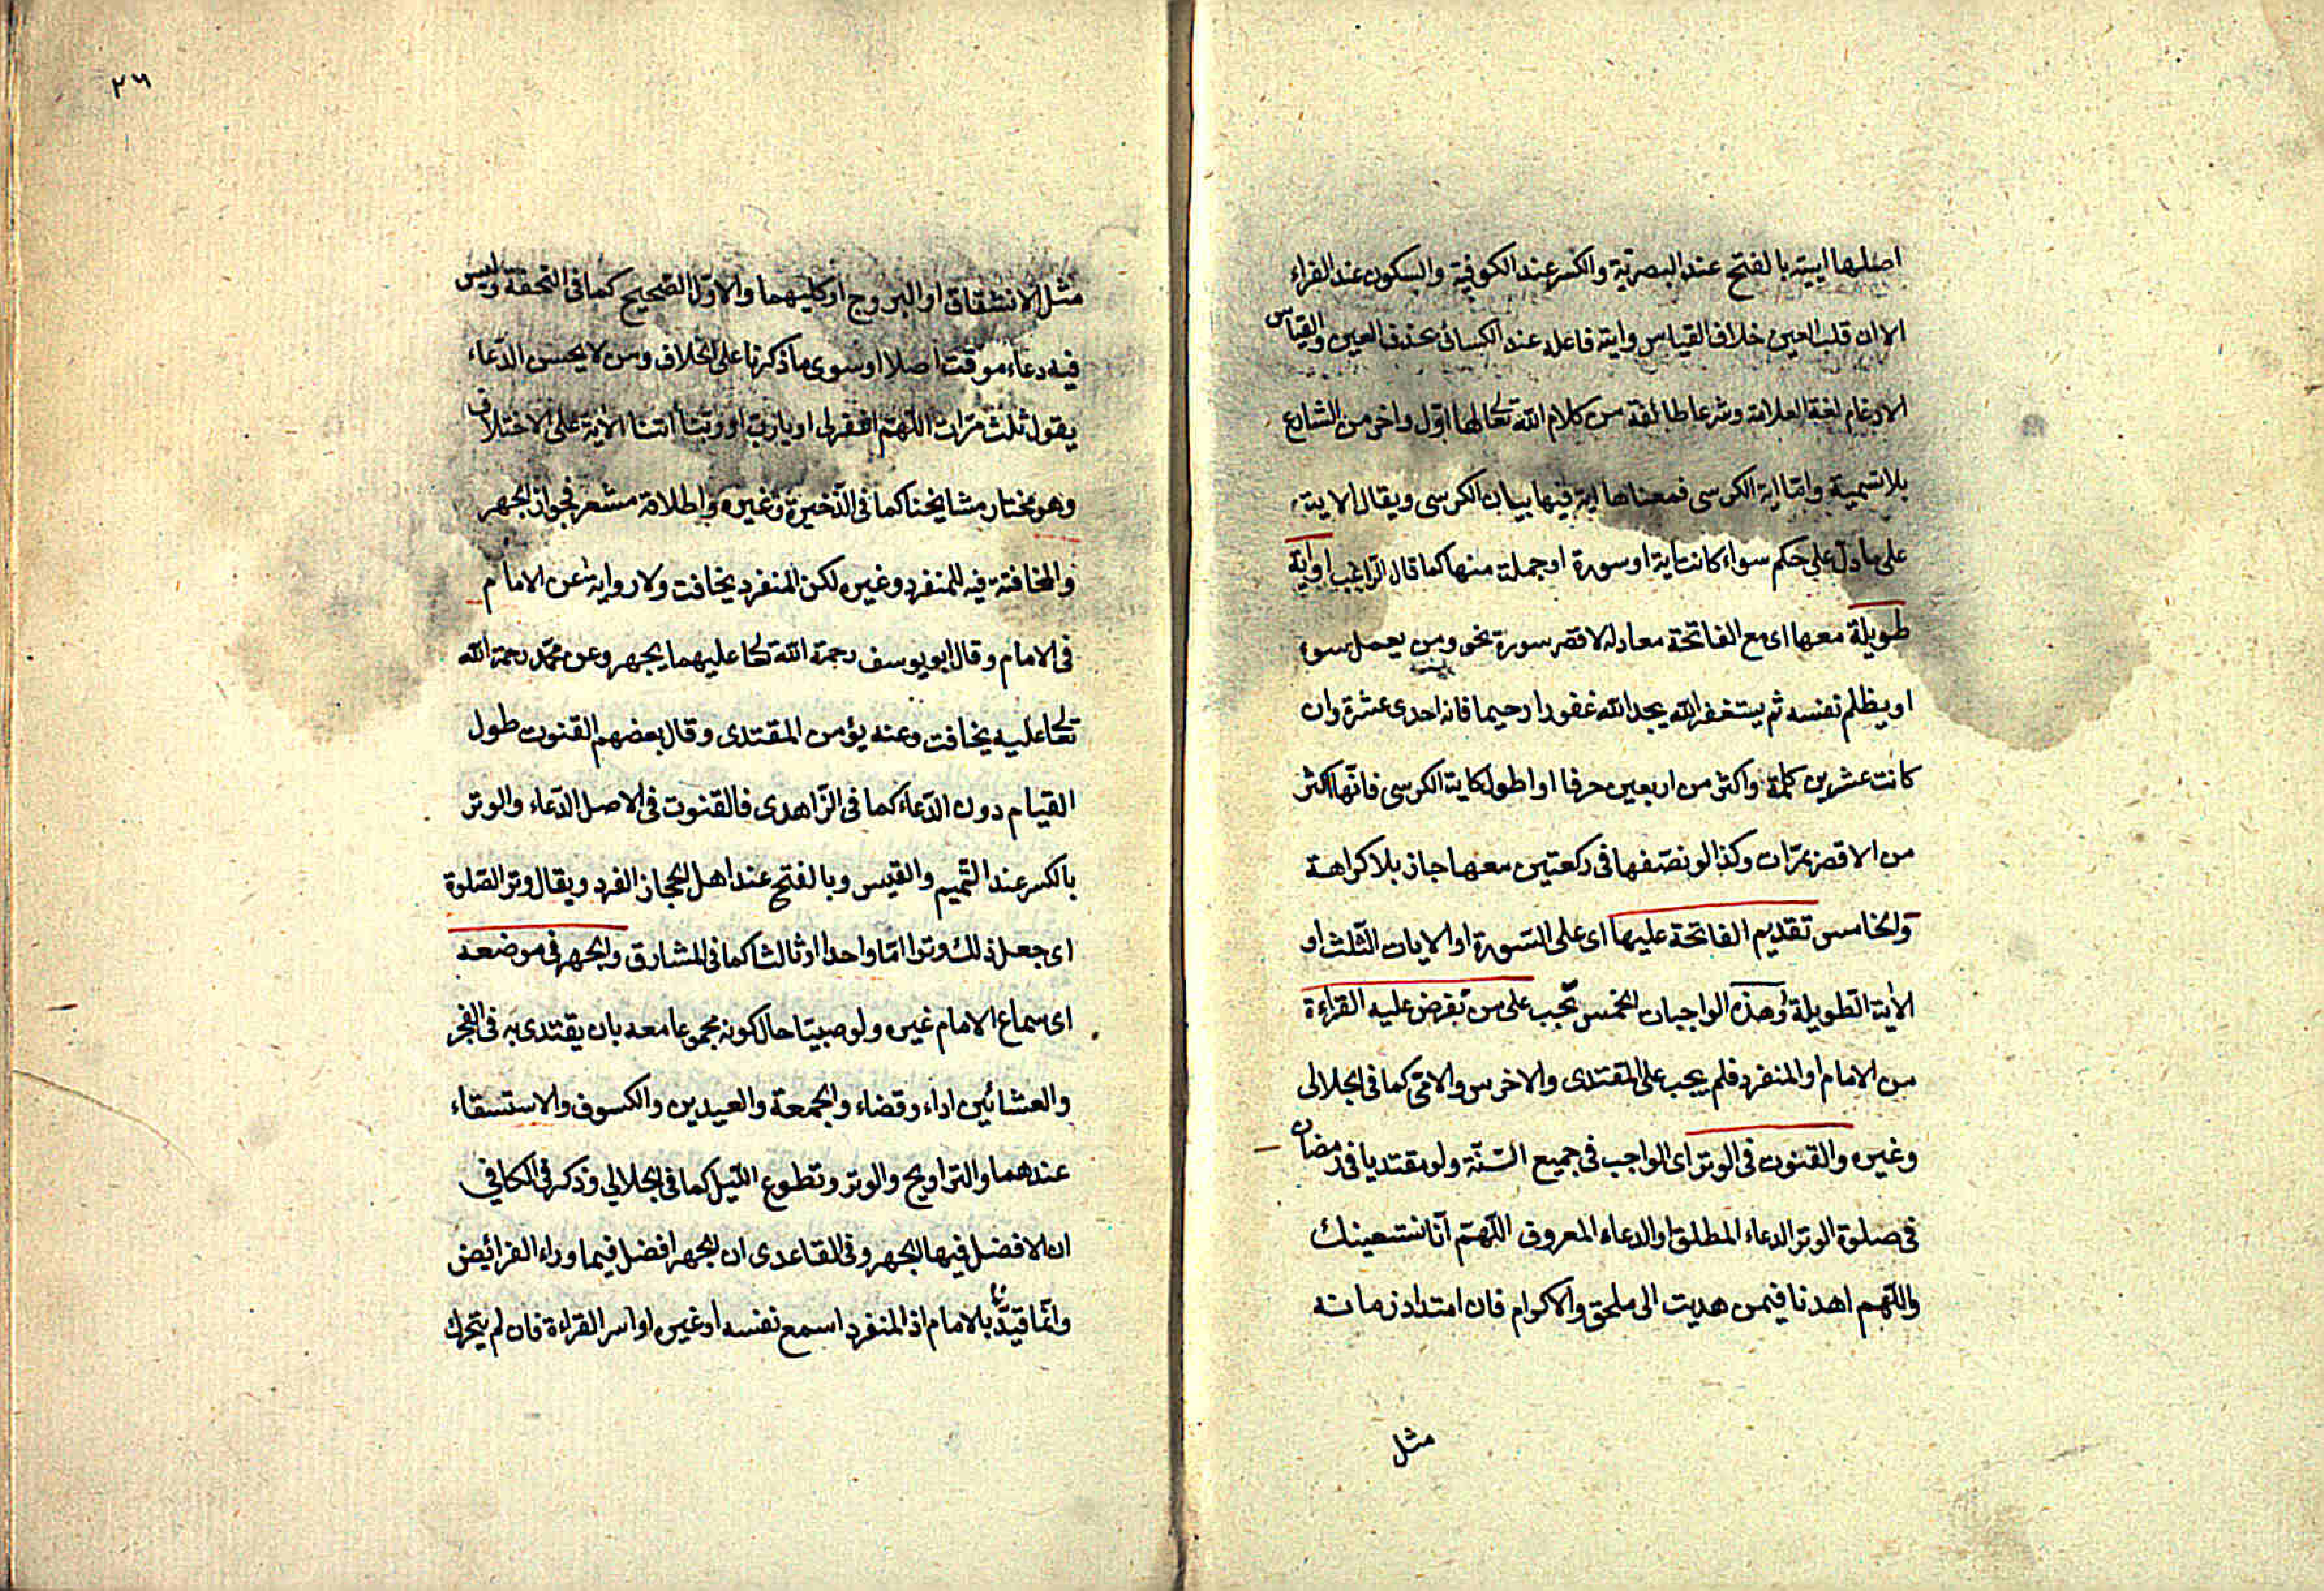 اصلها ايية بالفتح عند البصرية والكسر عند الكوفية والسكون عند الفراء
الا ان قلب العين خلاف القياس واية فاعلة عند الكسائى بحذف العين والقياس
الادغام لغة العلامة وشرعا طائفة من كلام الله تعالى لها اول واخر من الشارع
بلا تسمية واما اية الكرسى فمعناها اية فيها بيان الكرسى ويقال الاية
على ما دل على حكم سواء كانت اية او سورة او جملة منها كما قال الراغب او اية
طويلة معها اى مع الفاتحة معادلة لاقصر سورة نحو ومن يعمل سوء
او يظلم نفسه ثم يستغفر الله يجد الله غفورا رحيما فانه احدى عشرة وان
كانت عشرين كلمة واكثر من اربعين حرفا او اطول كاية الكرسى فانها اكثر
من الاقصر بمرّات وكذا لو نصّفها فى ركعتين معها جاز بلا كراهة
والخامس تقديم الفاتحة عليها اى على السّورة او الايات الثّلث او
الاية الطّويلة وهذه الواجبات الخمس تجب على من تفرض عليه القراءة
من الامام او المنفرد فلم يجب على المقتدى والاخرس والامّى كما فى الجلالى
وغيره والقنوت فى الوتر اى الواجب فى جميع السّنّة ولو مقتديا فى رمضان
فى صلوة الوتر الدعاء المطلق او الدعاء المعروف اللّهمّ انّا نستعينك
واللّهم اهدنا فيمن هديت الى ملحق والاكرام فان امتداد زمانه
مثل
٢٦
مثل الانشقاق او البروج او كليهما والاوّل الصّحيح كما فى التحفة وليس
فيه دعاء موقت اصلا او سوى ما ذكرنا على الخلاف ومن لا يحسن الدّعاء
يقول ثلث مرّات اللّهمّ اغفرلى او يا ربّ او ربّنا اتنا الاية على الاختلاف
وهو مختار مشايخنا كما فى الذّخيرة وغيره واطلاقه مشعر بجواز الجهر
والمخافتة فيه للمنفرد وغيره لكن المنفرد يخافت ولا رواية عن الامام
فى الامام وقال ابو يوسف رحمة الله تعالى عليهما يجهر وعن محمّد رحمة الله
تعالى عليه يخافت وعنه يؤمن المقتدى وقال بعضهم القنوت طول
القيام دون الدّعاء كما فى الزّاهدى فالقنوت فى الاصل الدّعاء والوتر
بالكسر عند التّميم والقيس وبالفتح عند اهل الحجاز الفرد ويقال وتر الصّلوة
اى جعل ذلك وترا امّا واحدا او ثالثا كما فى المشارق والجهر فى موضعه
اى سماع الامام غيره ولو صبيّا حال كونه مجموعا معه بان يقتدى به فى الفجر
والعشائين اداء وقضاء والجمعة والعيدين والكسوف والاستسقاء
عندهما والتراويح والوتر وتطوع اللّيل كما فى الجلالى وذكر فى الكافى
ان الافضل فيها الجهر وفى القاعدى ان الجهر افضل فيما وراء الفرائض
وانّما قيّدنا بالامام اذ المنفرد اسمع نفسه او غيره او اسر القراءة فان لم يتحرك